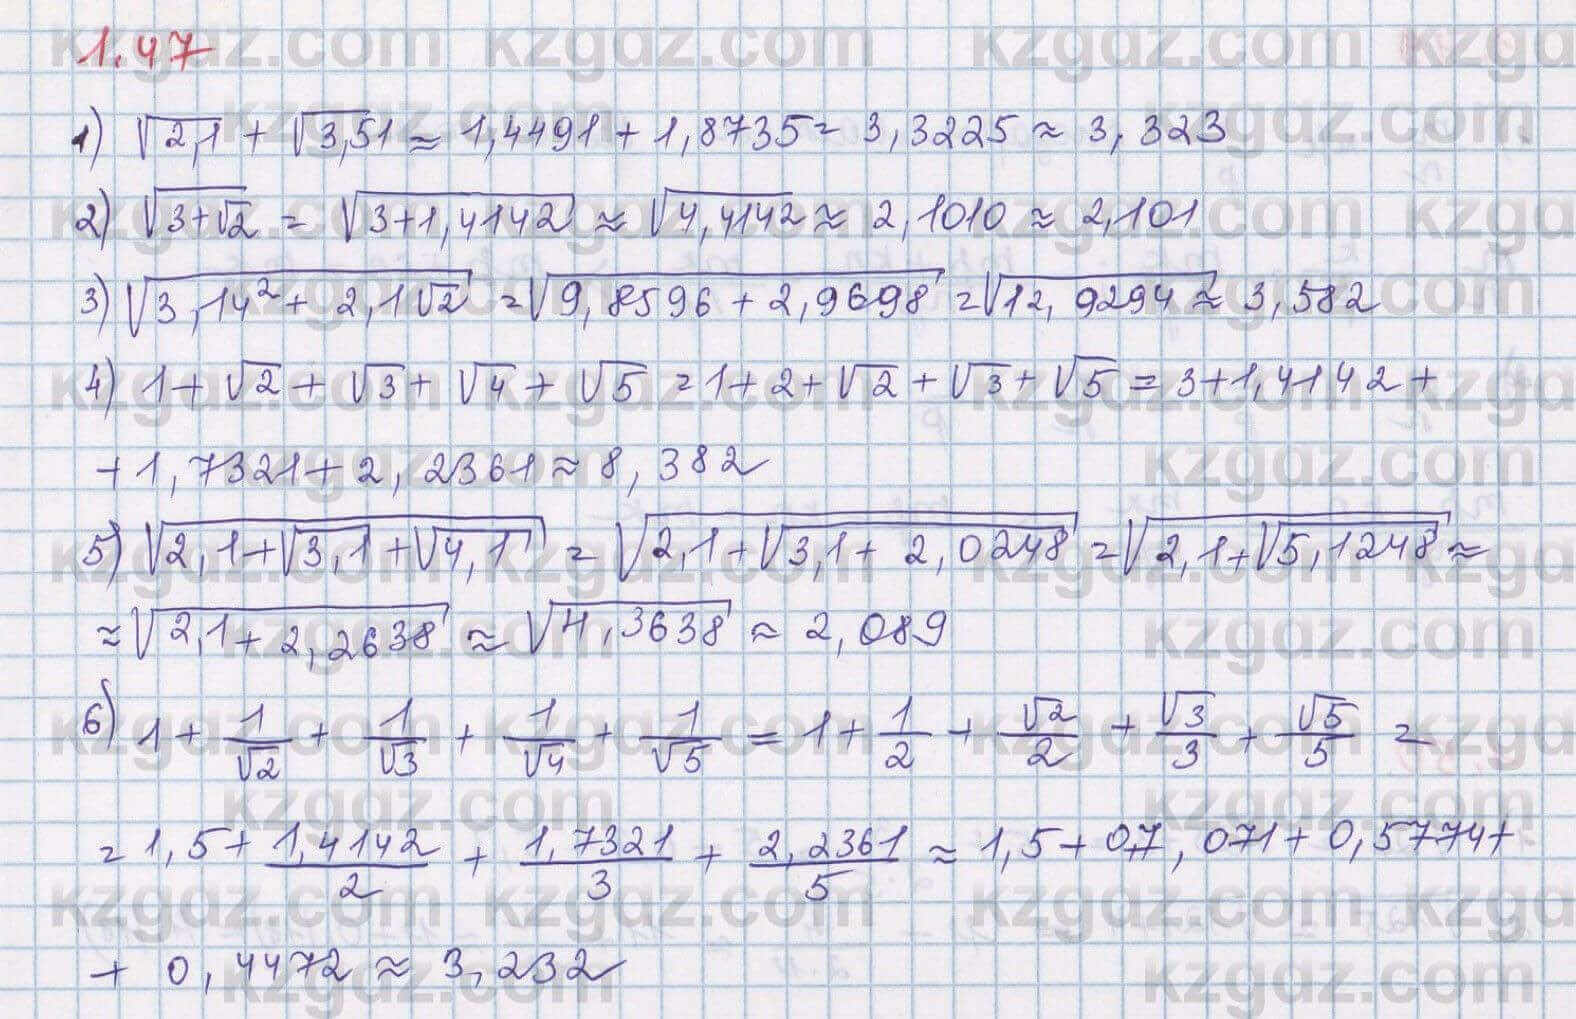 1.47
1) √2,1 + √3,51 ≈ 1,4491 + 1,8735 = 3,3225 ≈ 3,323
2) √(3+√2) = √(3+1,4142) ≈ √4,4142 ≈ 2,1010 ≈ 2,101
3) √(3,14² + 2,1√2) = √(9,8596 + 2,9698) = √12,9294 ≈ 3,582
4) 1 + √2 + √3 + √4 + √5 = 1 + 2 + √2 + √3 + √5 = 3 + 1,4142 +
+ 1,7321 + 2,2361 ≈ 8,382
5) √(2,1+√(3,1+√4,1)) = √(2,1+√(3,1+2,0248)) = √(2,1+√5,1248) ≈
≈ √(2,1+2,2638) ≈ √4,3638 ≈ 2,089
6) 1 + 1/√2 + 1/√3 + 1/√4 + 1/√5 = 1 + 1/2 + √2/2 + √3/3 + √5/5 =
= 1,5 + 1,4142/2 + 1,7321/3 + 2,2361/5 ≈ 1,5 + 07,071 + 0,5774 +
+ 0,4472 ≈ 3,232